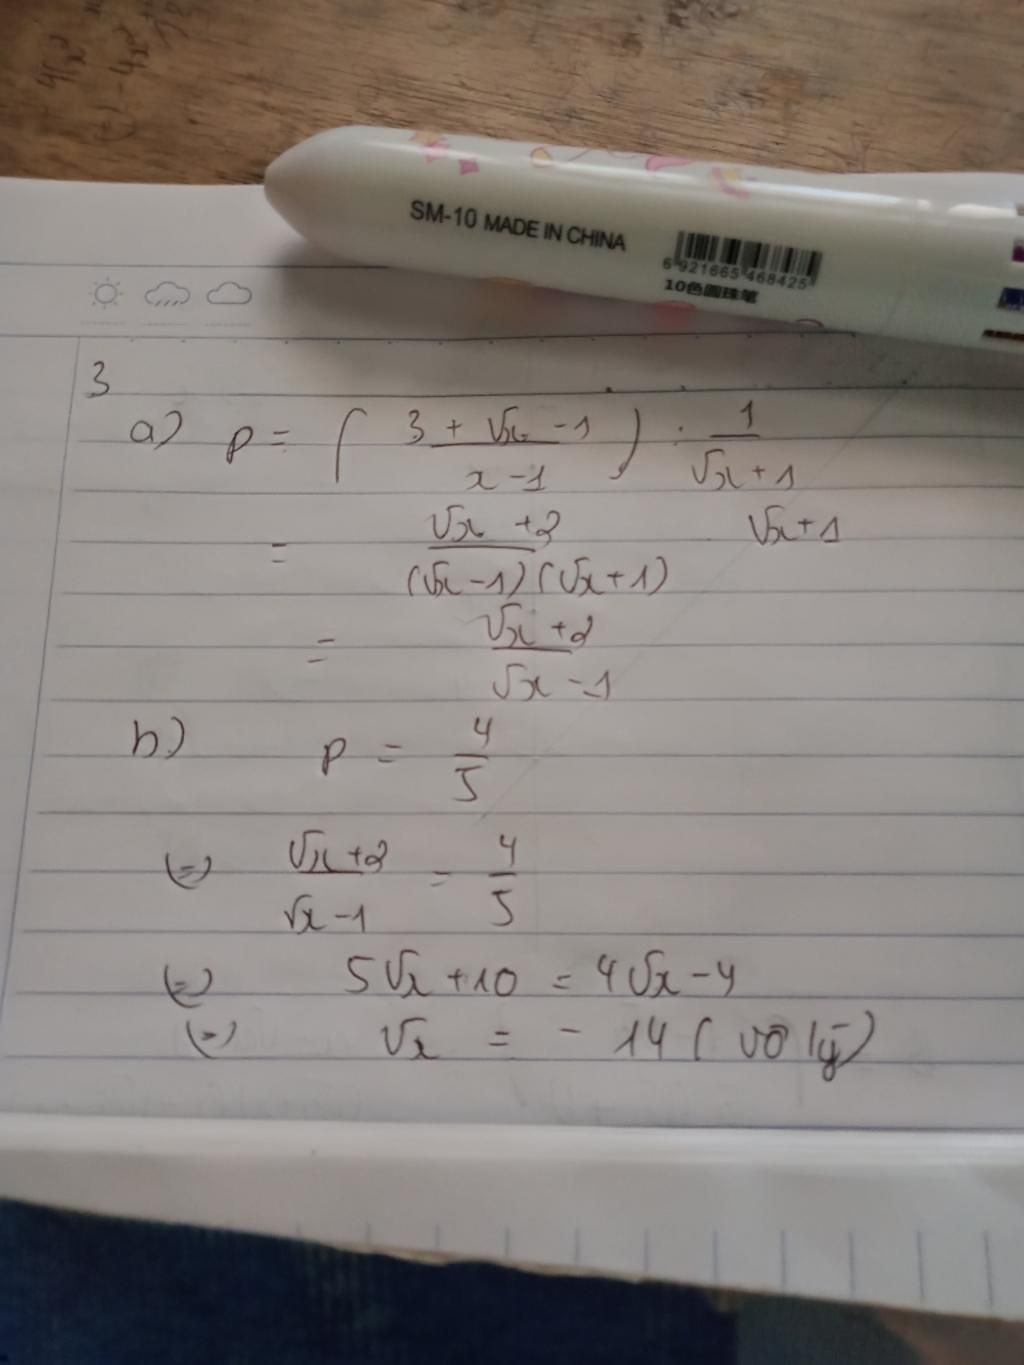 SM-10 MADE IN CHINA
6 921665 468425
10色圆珠笔
3
a) P = ( (3 + √x - 1)/(x - 1) ) : 1/(√x + 1)
= (√x + 2)/((√x - 1)(√x + 1)) . √x + 1
= (√x + 2)/(√x - 1)
b) P = 4/5
(=) (√x + 2)/(√x - 1) = 4/5
(=) 5√x + 10 = 4√x - 4
(=) √x = - 14 ( vô lý)